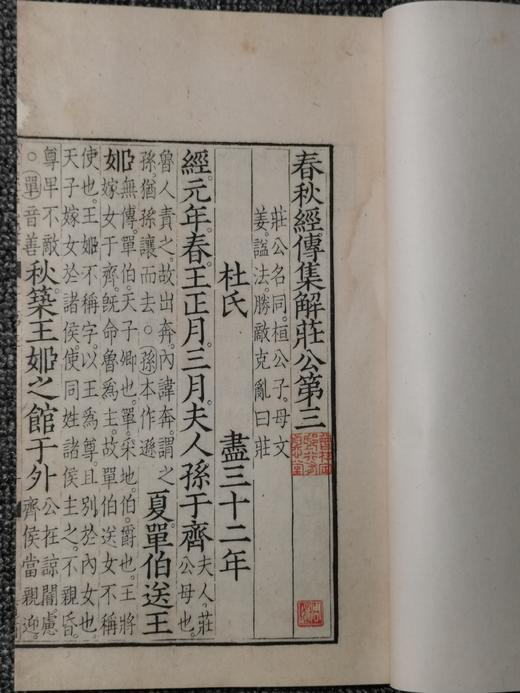 春秋經傳集解莊公第三
莊公名同。桓公子。母文
姜。諡法。勝敵克亂曰莊
杜氏 盡三十二年
經。元年。春。王正月。三月。夫人孫于齊
夫人。莊
公母也。
魯人責之。故出奔。內諱奔。謂之
孫。猶孫讓而去。○孫本作遜
夏。單伯送王
姬
無傳。單伯。天子卿也。單。采地。伯。爵也。王將
嫁女于齊。旣命魯爲主。故單伯送女。不稱
使也。王姬不稱字。以王爲尊。且別於內女也
天子嫁女於諸侯。使同姓諸侯主之。不親昏。
尊卑不敵
○單音善
秋。築王姬之館于外
公在諒闇。慮
齊侯當親迎。